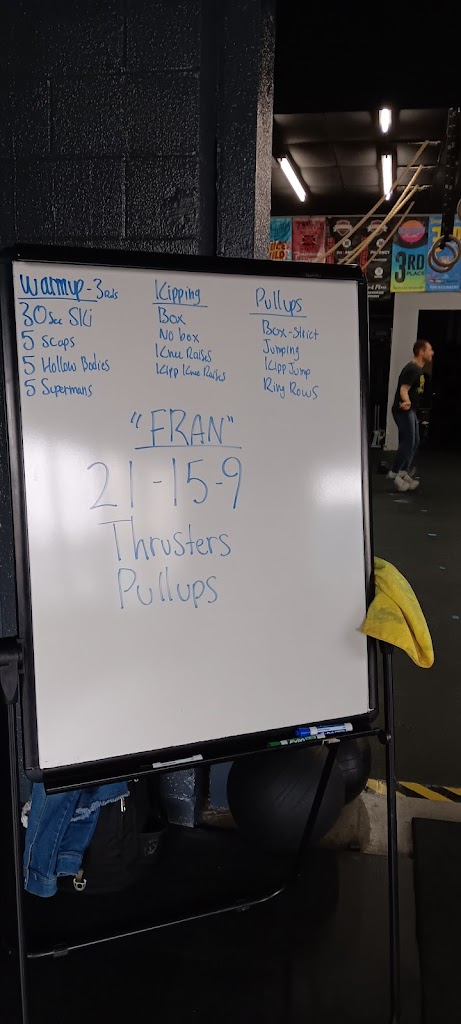 Warmup - 3 rds
30 sec Ski
5 Scaps
5 Hollow Bodies
5 Supermans
Kipping
Box
No box
Knee Raises
Kipp Knee Raises
Pullups
Box-Strict
Jumping
Kipp Jump
Ring Rows
"FRAN"
21-15-9
Thrusters
Pullups
3RD
PLACE